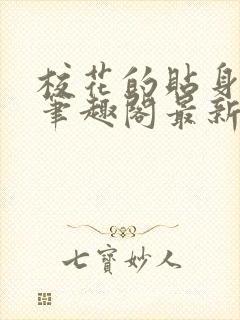 校花的贴身
笔趣阁最新
七寶妙人